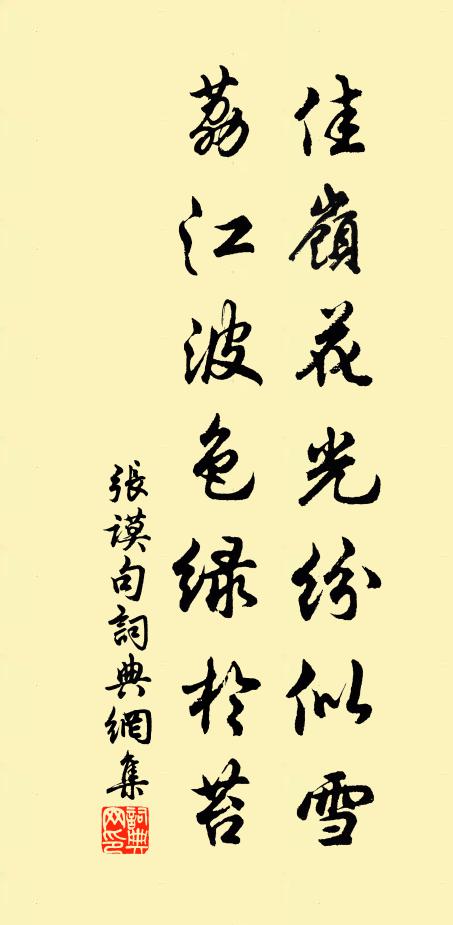 佳嶺花光紛似雪
荔江波色綠於苔
張謨句詞典網集
詞典網印